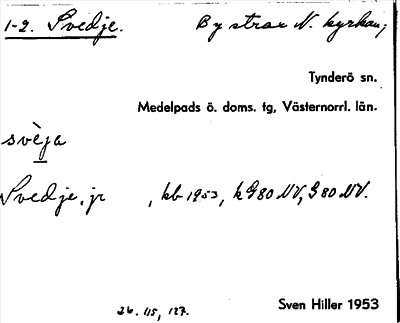 1-2. Svedje. By strax N. kyrkan;
Tynderö sn.
Medelpads ö. doms. tg, Västernorrl. län.
svè̱ja
Svedje, jr , kb 1953, k G80 NV, G 80 NV.
26. 115, 127.
Sven Hiller 1953